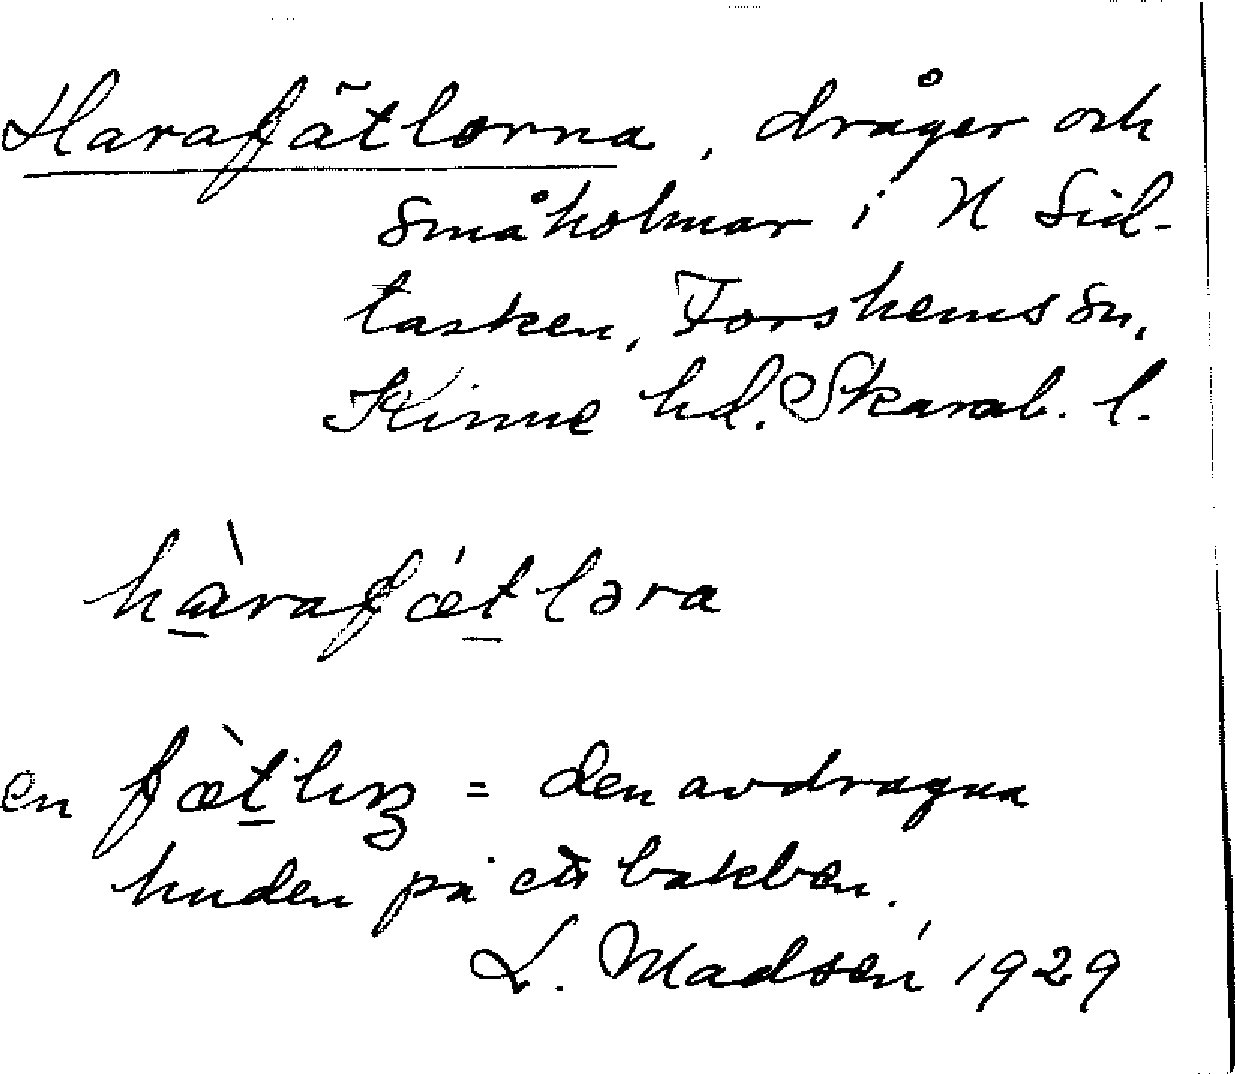 Harafätlorna, dråger och
småholmar i N Sid-
tasken, Forshems sn,
Kinne hd. Skarab. l.
hàrafǽtləra
en fæ̀tliŋ = den avdragna
huden på ett bakben.
L. Madsén 1929